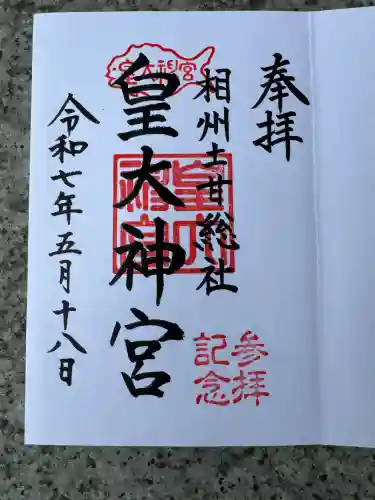 奉拝
相州土甘総社
皇大神宮
皇大神宮
皇大神宮
参拝
記念
令和七年五月十八日